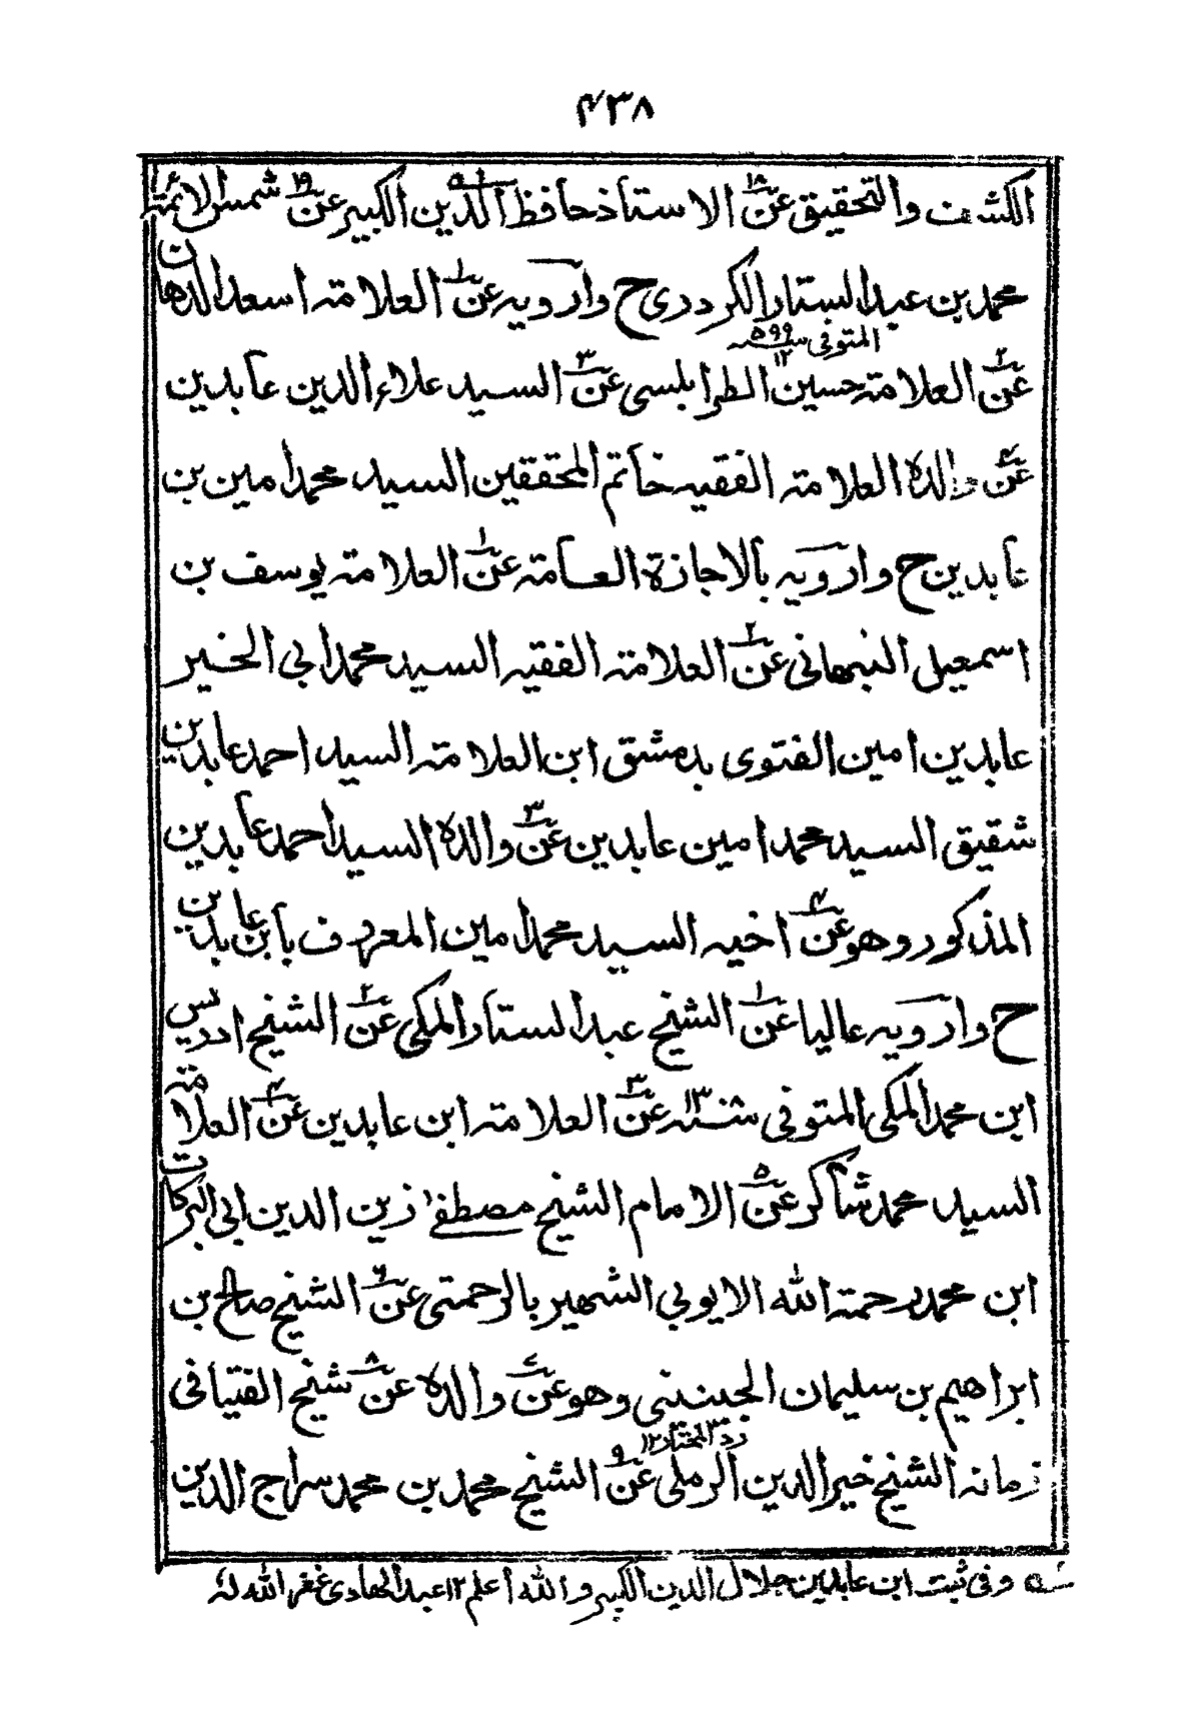 ۴۳۸
الكشف والتحقيق عن ۱۸ الاستاذ حافظ الدين الكبير عن ۱۹ شمس الائمة
محمد بن عبد الستار الكردري ح وارويه عن ۱ العلامة اسعد الدهان
المتوفى سنة ۵۹۹ ۱۲
عن ۲ العلامة حسين الطرابلسي عن ۳ السيد علاء الدين عابدين
عن ۴ والده العلامة الفقيه خاتم المحققين السيد محمد امين بن
عابدين ح وارويه بالاجازة العامة عن ۱ العلامة يوسف بن
اسمعيل النبهاني عن ۲ العلامة الفقيه السيد محمد ابي الخير
عابدين امين الفتوى بدمشق ابن العلامة السيد احمد عابدين
شقيق السيد محمد امين عابدين عن ۳ والده السيد احمد عابدين
المذكور وهو عن ۴ اخيه السيد محمد امين المعروف بابن عابدين
ح وارويه عاليا عن ۱ الشيخ عبد الستار المكي عن ۲ الشيخ ادريس
ابن محمد المكي المتوفى سنة عن ۳ العلامة ابن عابدين عن ۴ العلامة
السيد محمد شاكر عن ۵ الامام الشيخ مصطفى زين الدين ابي البركات
ابن محمد رحمة الله الايوبي الشهير بالرحمتي عن ۶ الشيخ صالح بن
ابراهيم بن سليمان الجينيني وهو عن ۷ والده عن ۸ شيخ الفتيا في
رد المحتار ۱۲
زمانه الشيخ خير الدين الرملي عن ۹ الشيخ محمد بن محمد سراج الدين
وفي ثبت ابن عابدين جلال الدين الكبير والله اعلم ۱۲ عبد الهادي غفر الله له